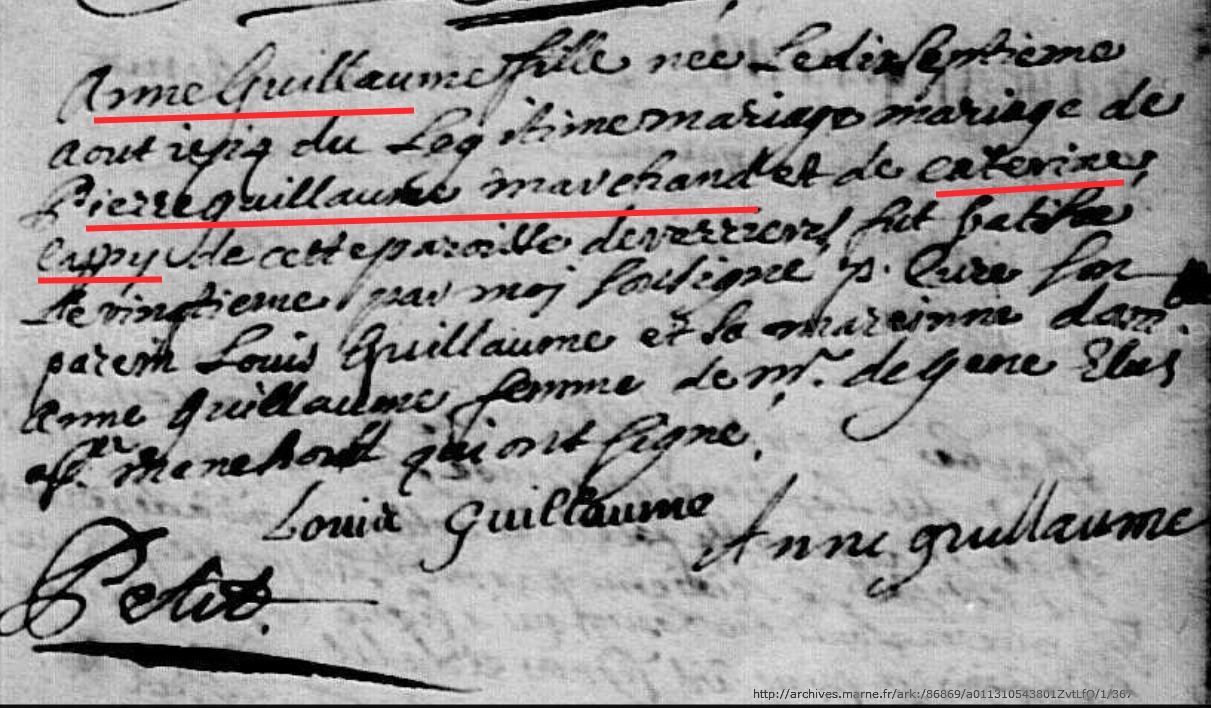 Anne Guillaume fille née Le dix Septieme
aout du Legitime mariage mariage de
Pierre guillaume marchand et de caterine
Cappy de cette paroisse de verrieres fut batisée
Le vingtieme par moy soussigné p. Curé son
parein Louis Guillaume et sa mareinne dam.
anne guillaume femme de mr. de gene Elus
a Ste. manehout qui ont signé.
Louis Guillaume Anne guillaume
Petit.
http://archives.marne.fr/ark:/86869/a011310543801ZvtLfO/1/367